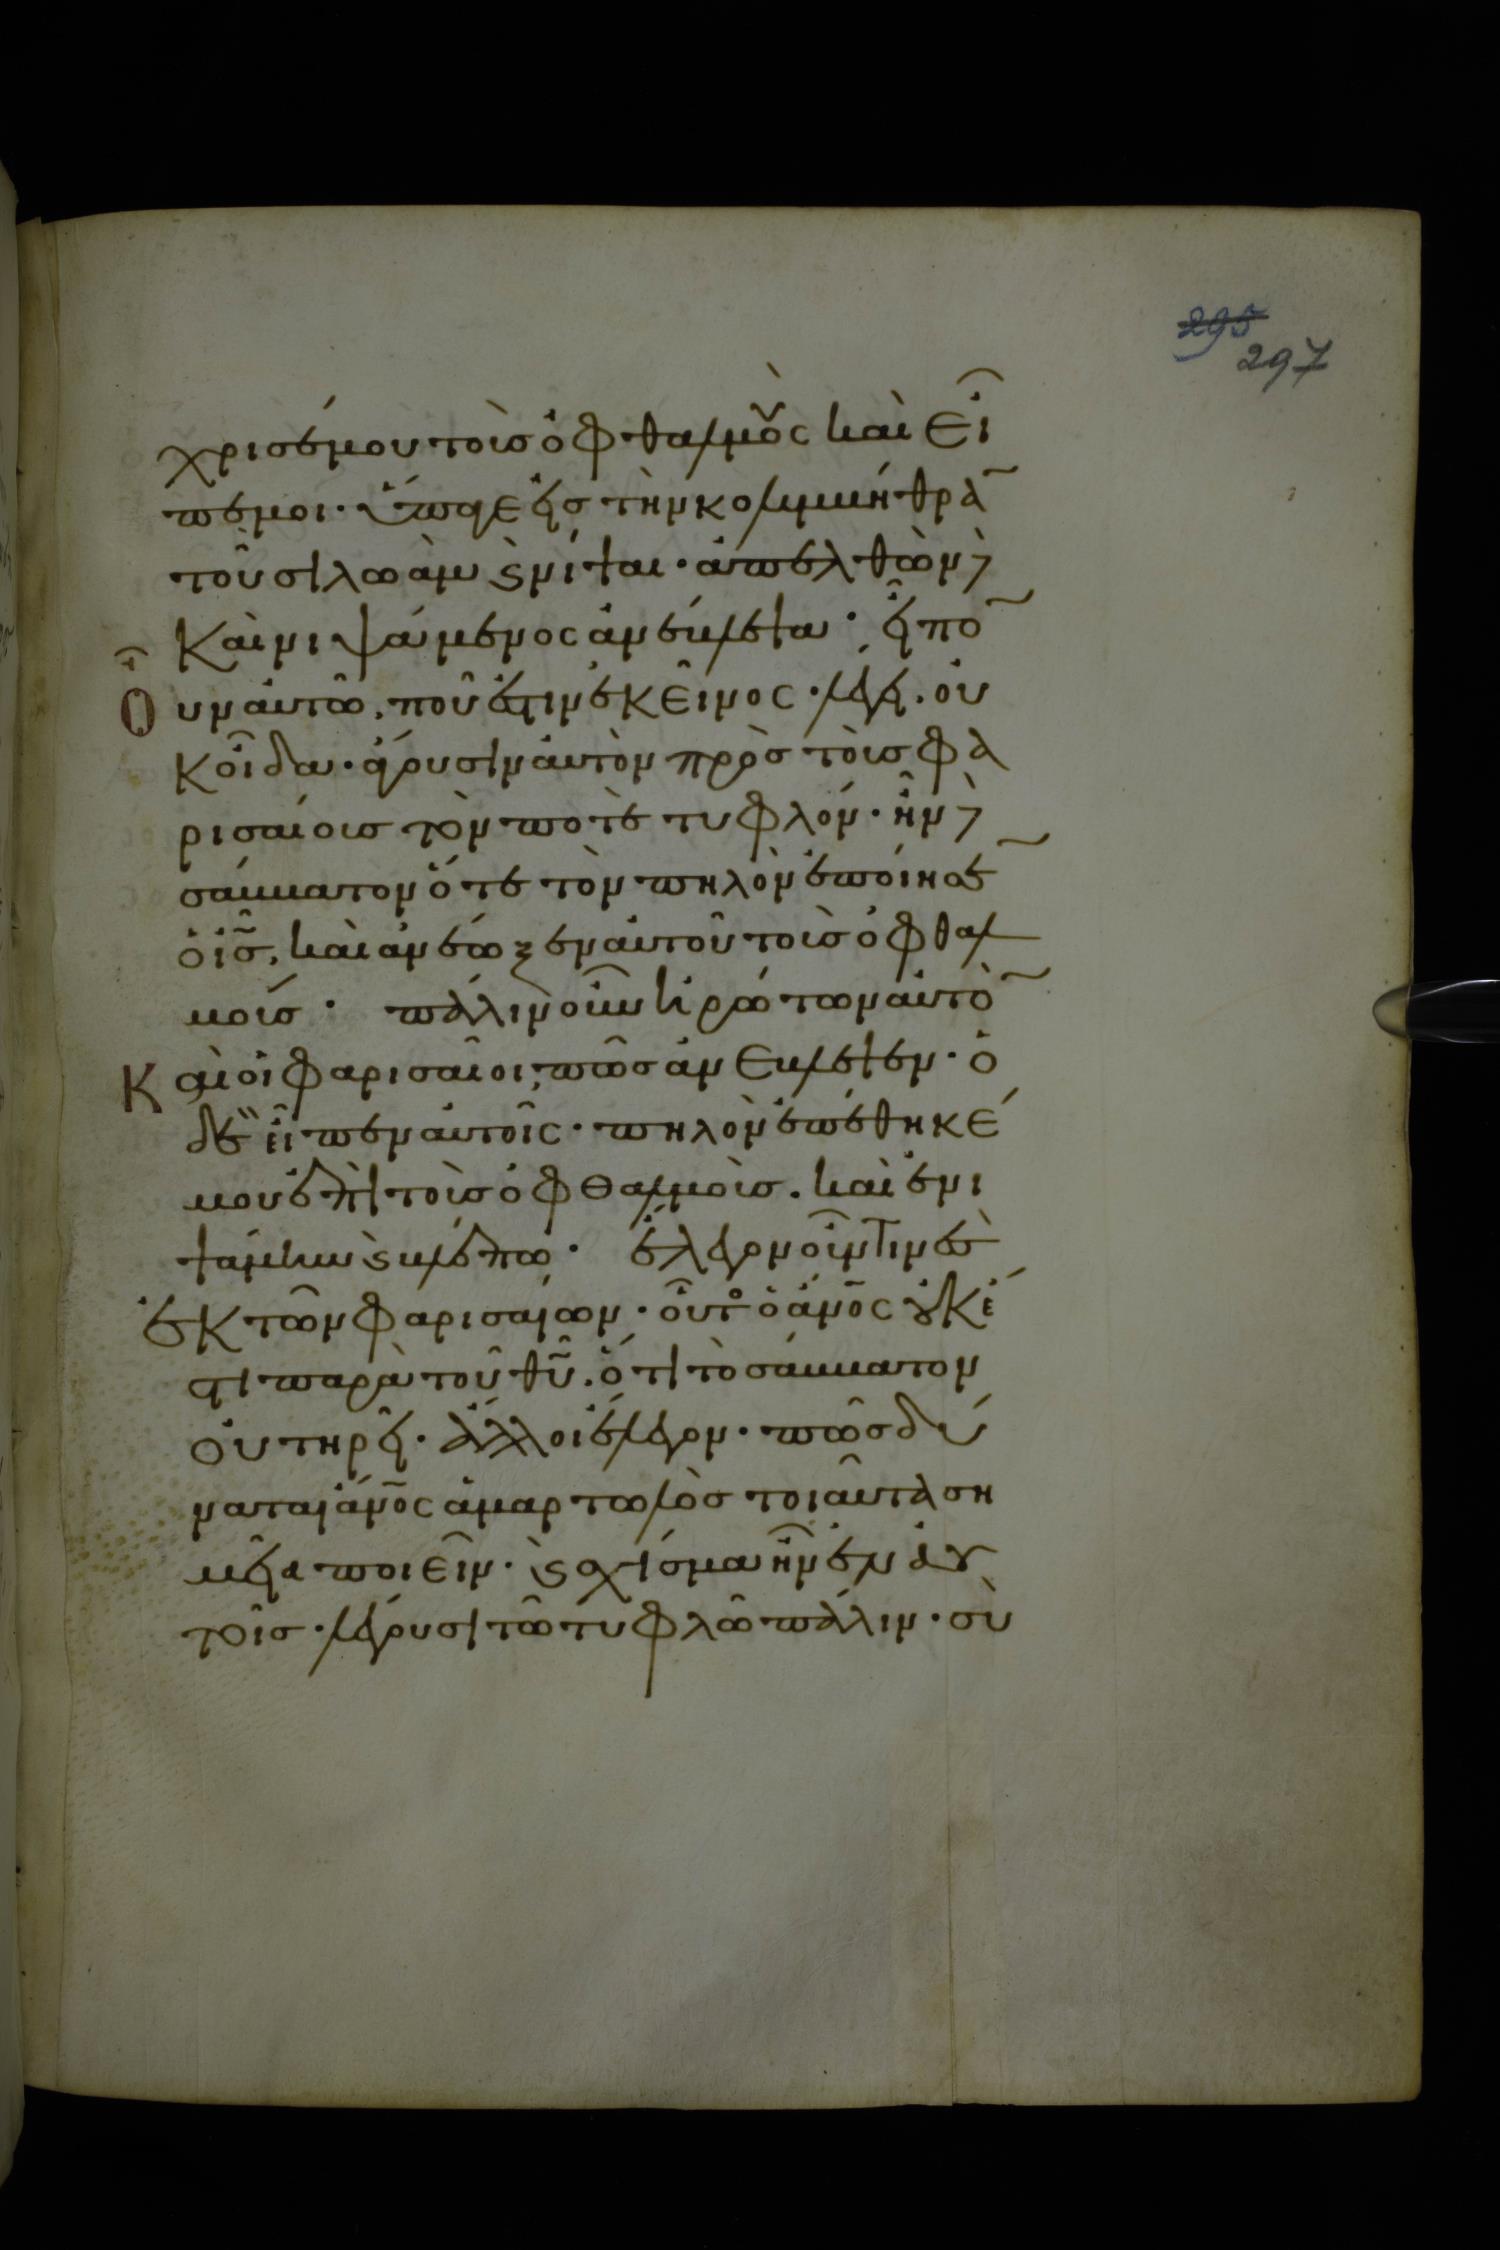 295
297
χρισέ μου τοὺσ ὀφθαλμοὺς καὶ εἶ
πέ μοι· ὕπαγε εἰσ τὴν κολυμβήθρα̃
τοῦ σιλωὰμ ϗ νίψαι· ἀπελθὼν δὲ
καὶ νιψάμενος ἀνέβλεψα· εἶπο̃
Οὖν αὐτῶ. ποῦ ἐστιν ἐκεῖνος· λέγει. οὐ
κ οἶδα· ἄγουσιν αὐτὸν πρὸσ τοὺσ φα
ρισαίουσ τόν ποτὲ τυφλόν· ἦν δὲ
σάββατον ὅτε τὸν πηλὸν ἐποίησε̃
ὁ ι̅σ̅, καὶ ἀνέωξεν αὐτοῦ τοὺσ ὀφθαλ
μούσ· πάλιν οὖν ἠρώτων αὐτὸ̃
Καὶ οἱ φαρισαῖοι, πῶσ ἀνέβλεψεν· ὁ
δὲ εἶπεν αὐτοῖς· πηλὸν ἐπέθηκέ
μου ἐπὶ τοὺσ ὀφθαλμοὺσ. καὶ ἐνι
ψάμην ϗ βλέπω· ἔλεγον οὖν τινὲσ
ἐκ τῶν φαρισαίων· οὗτος ὁ α̅ν̅ο̅ς̅ οὐκ ἔ
στι παρὰ τοῦ θ̅υ̅. ὅτι τὸ σάββατον
οὐ τηρεῖ· ἄλλοι ἔλεγον· πῶσ δύ
ναται α̅ν̅ο̅ς̅ ἁμαρτωλὸσ τοιαῦτα ση
μεῖα ποιεῖν· ϗ σχίσμα ἦν ἐν αὐ
τοῖσ· λέγουσι τῶ τυφλῶ πάλιν· σὺ